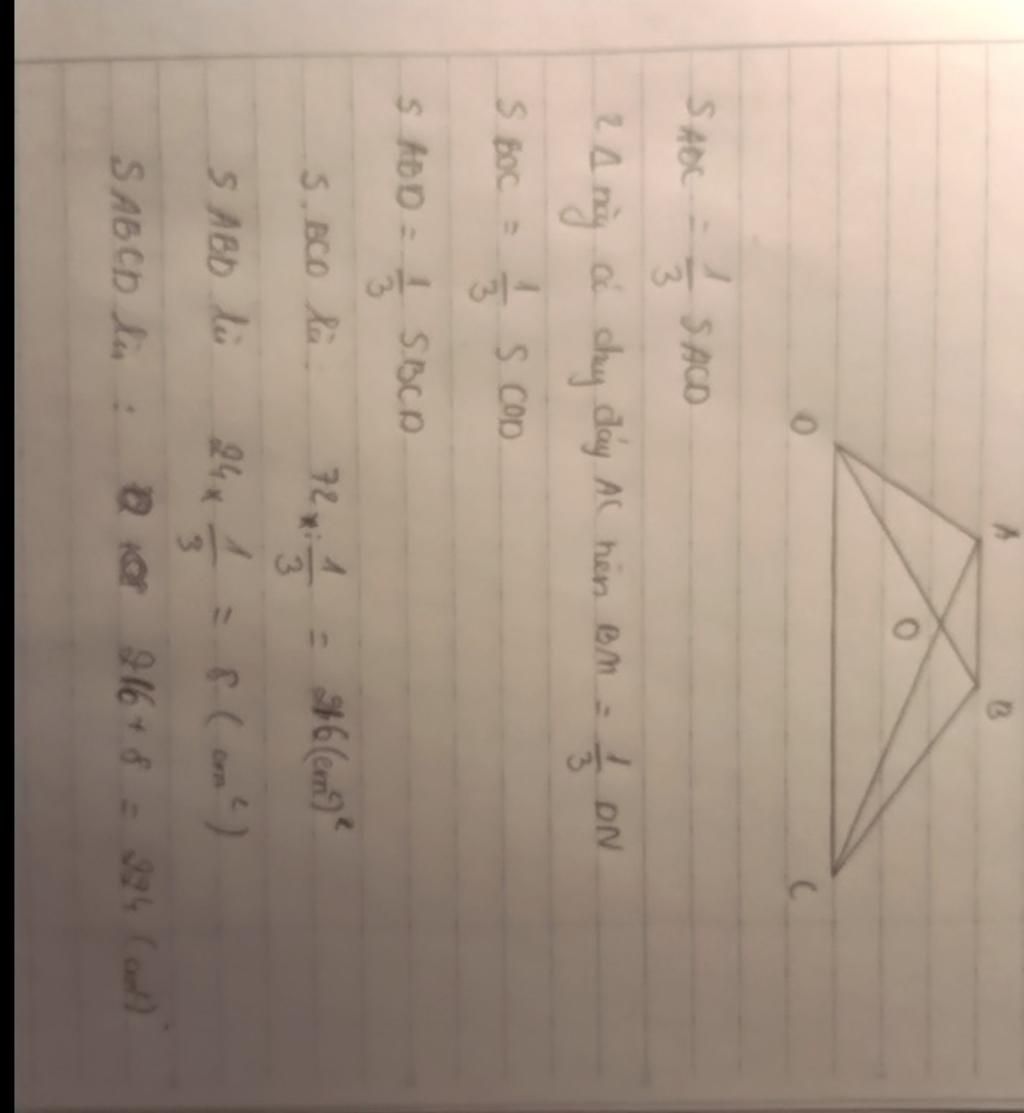 A B
O
D C
S ABC = 1/3 S ACD
2 Δ này có chung đáy AC nên BM = 1/3 DN
S BOC = 1/3 S COD
S ABD = 1/3 S BCD
S BCD là: 72 : 1/3 = 216 (cm²)²
S ABD là 24 x 1/3 = 8 (cm²)
S ABCD là : 216 + 8 = 224 (cm²)